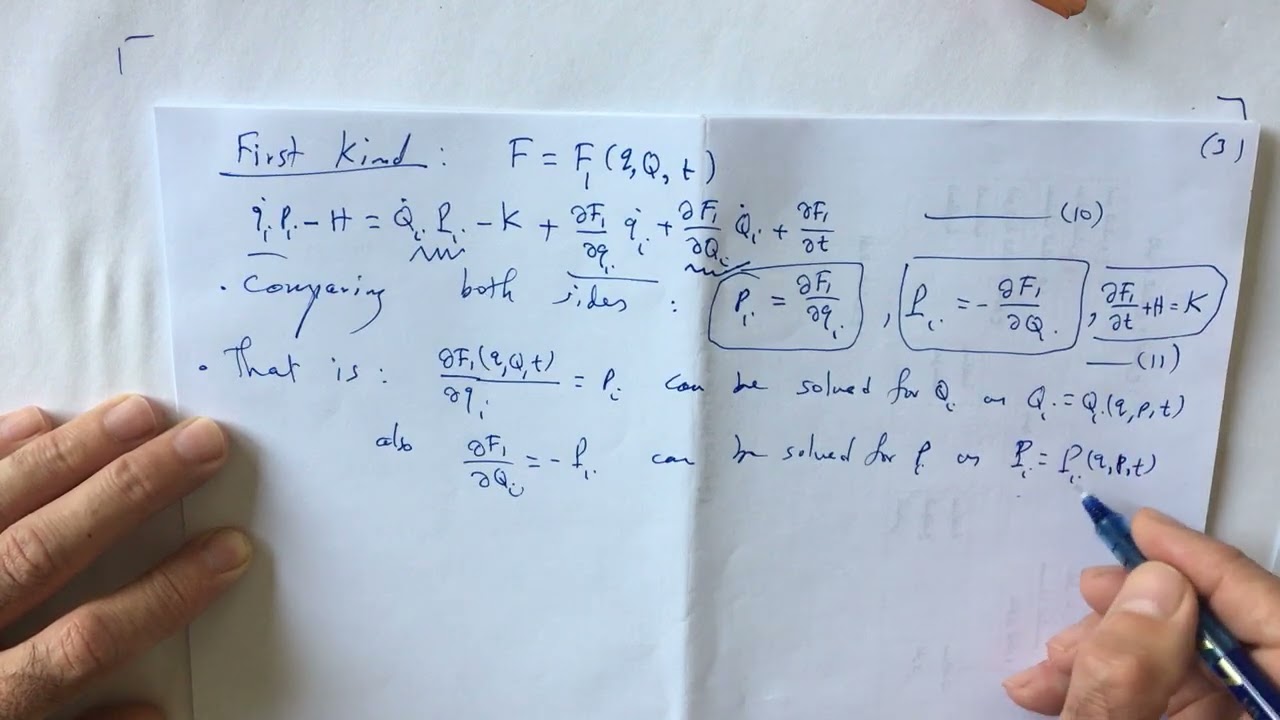 (3)
First Kind : F = F₁ (q, Q, t)
q̇ᵢ pᵢ - H = Q̇ᵢ Pᵢ - K + ∂F₁/∂qᵢ q̇ᵢ + ∂F₁/∂Qᵢ Q̇ᵢ + ∂F₁/∂t ——— (10)
• Comparing both sides : pᵢ = ∂F₁/∂qᵢ , Pᵢ = - ∂F₁/∂Qᵢ , ∂F₁/∂t + H = K
— (11)
• That is : ∂F₁(q,Q,t)/∂qᵢ = pᵢ can be solved for Qᵢ as Qᵢ = Qᵢ(q,p,t)
also ∂F₁/∂Qᵢ = - Pᵢ can be solved for Pᵢ as Pᵢ = Pᵢ(q,p,t)